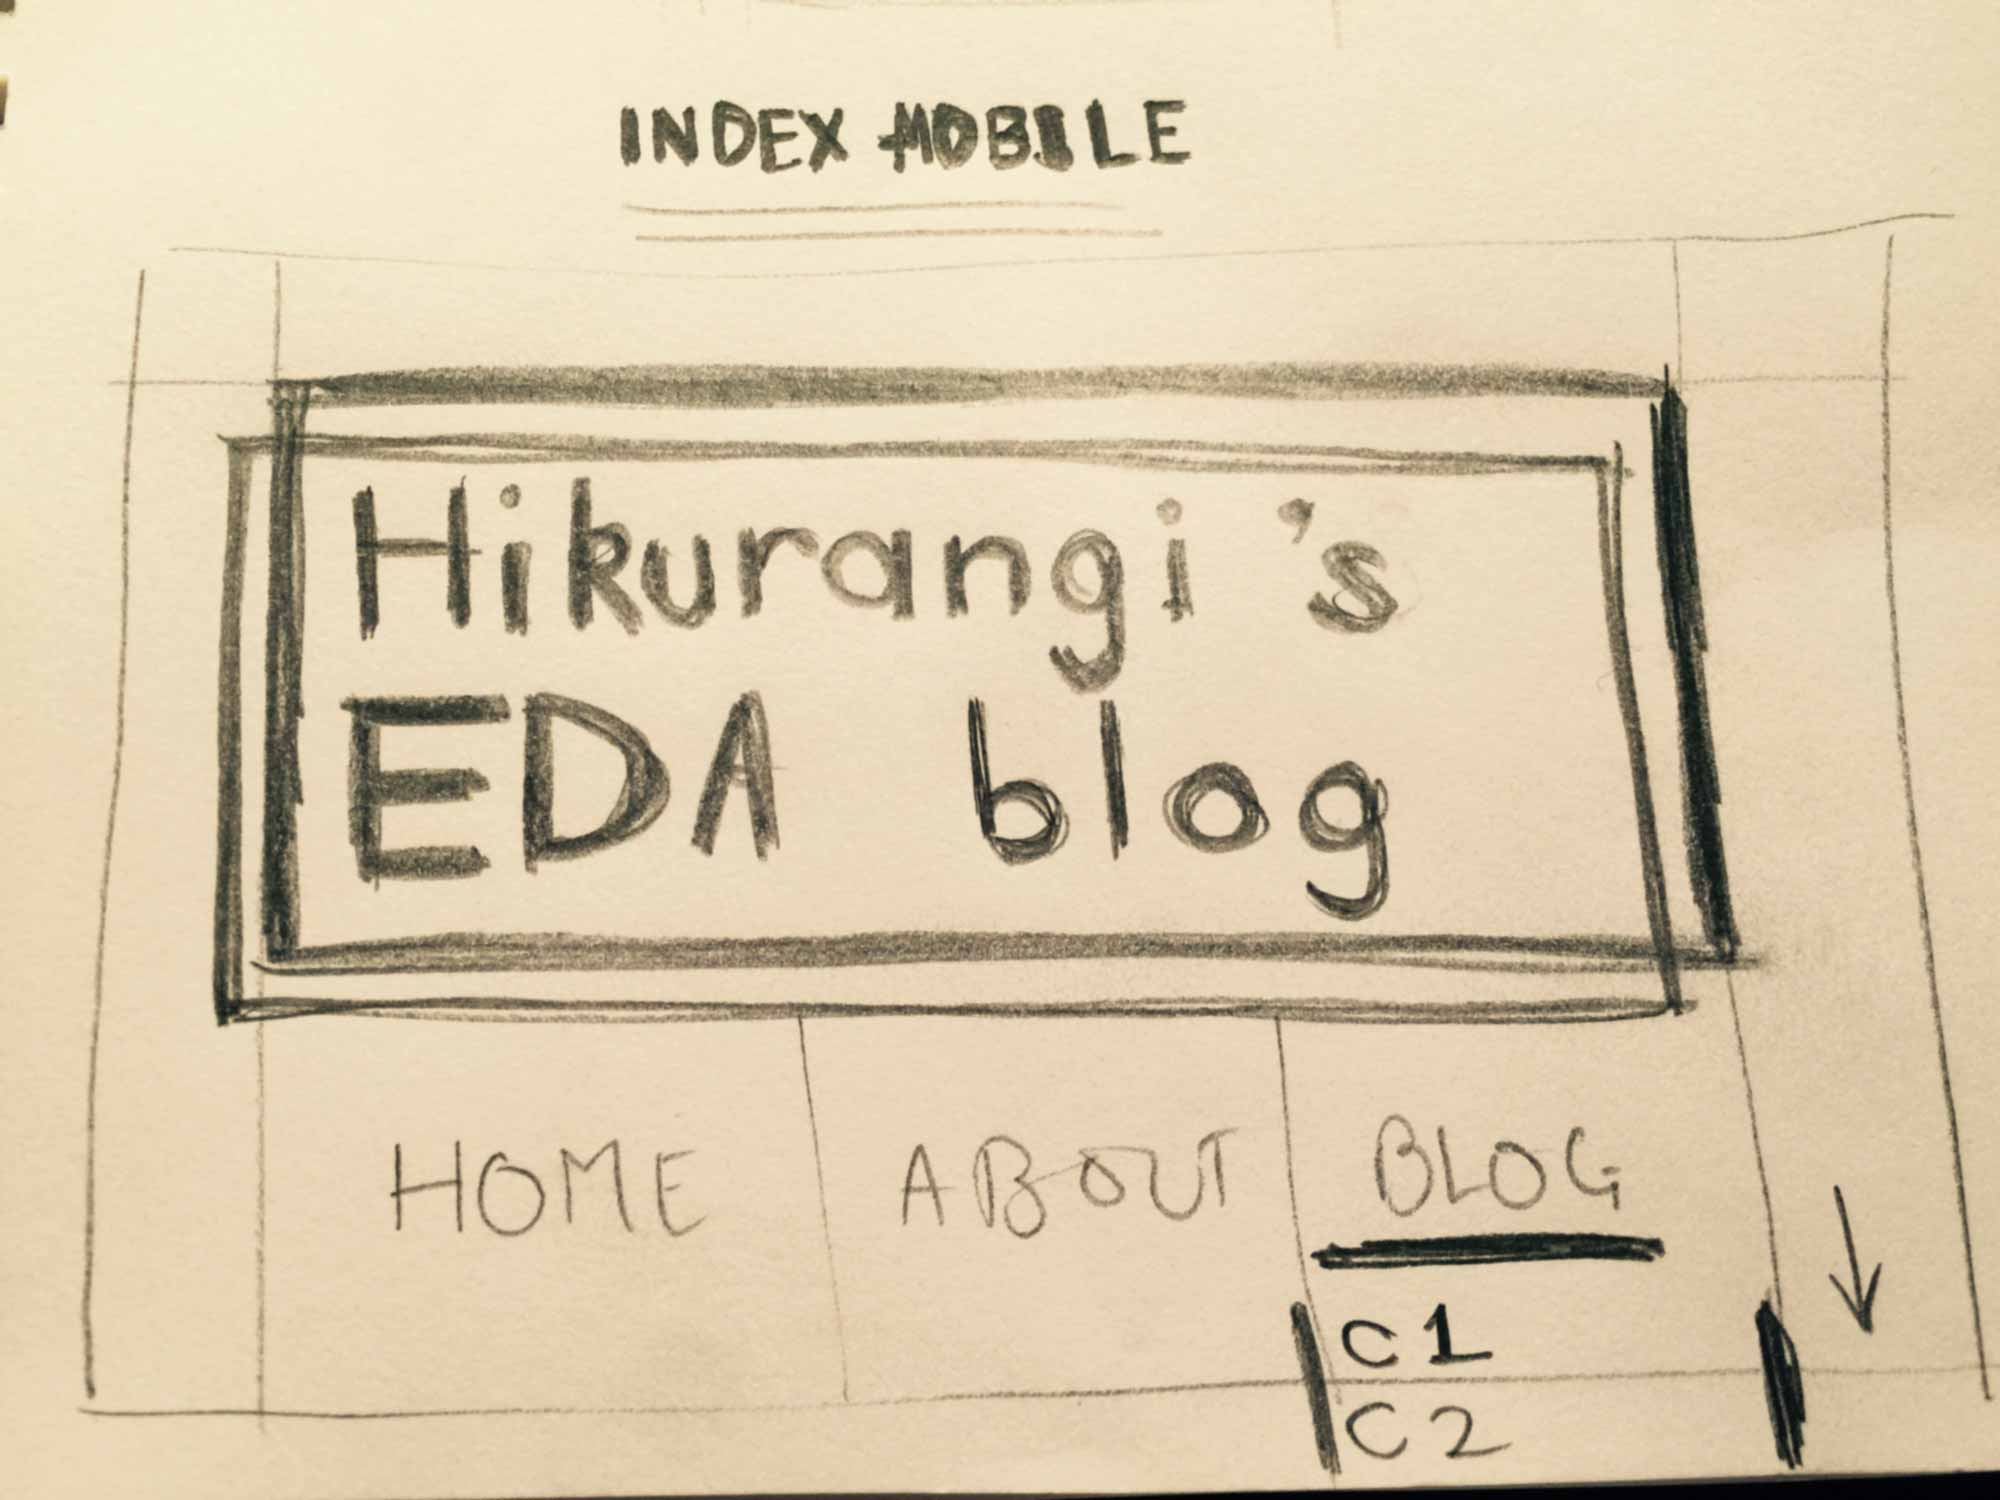 INDEX MOBILE
Hikurangi's
EDA blog
HOME ABOUT BLOG
C1
C2